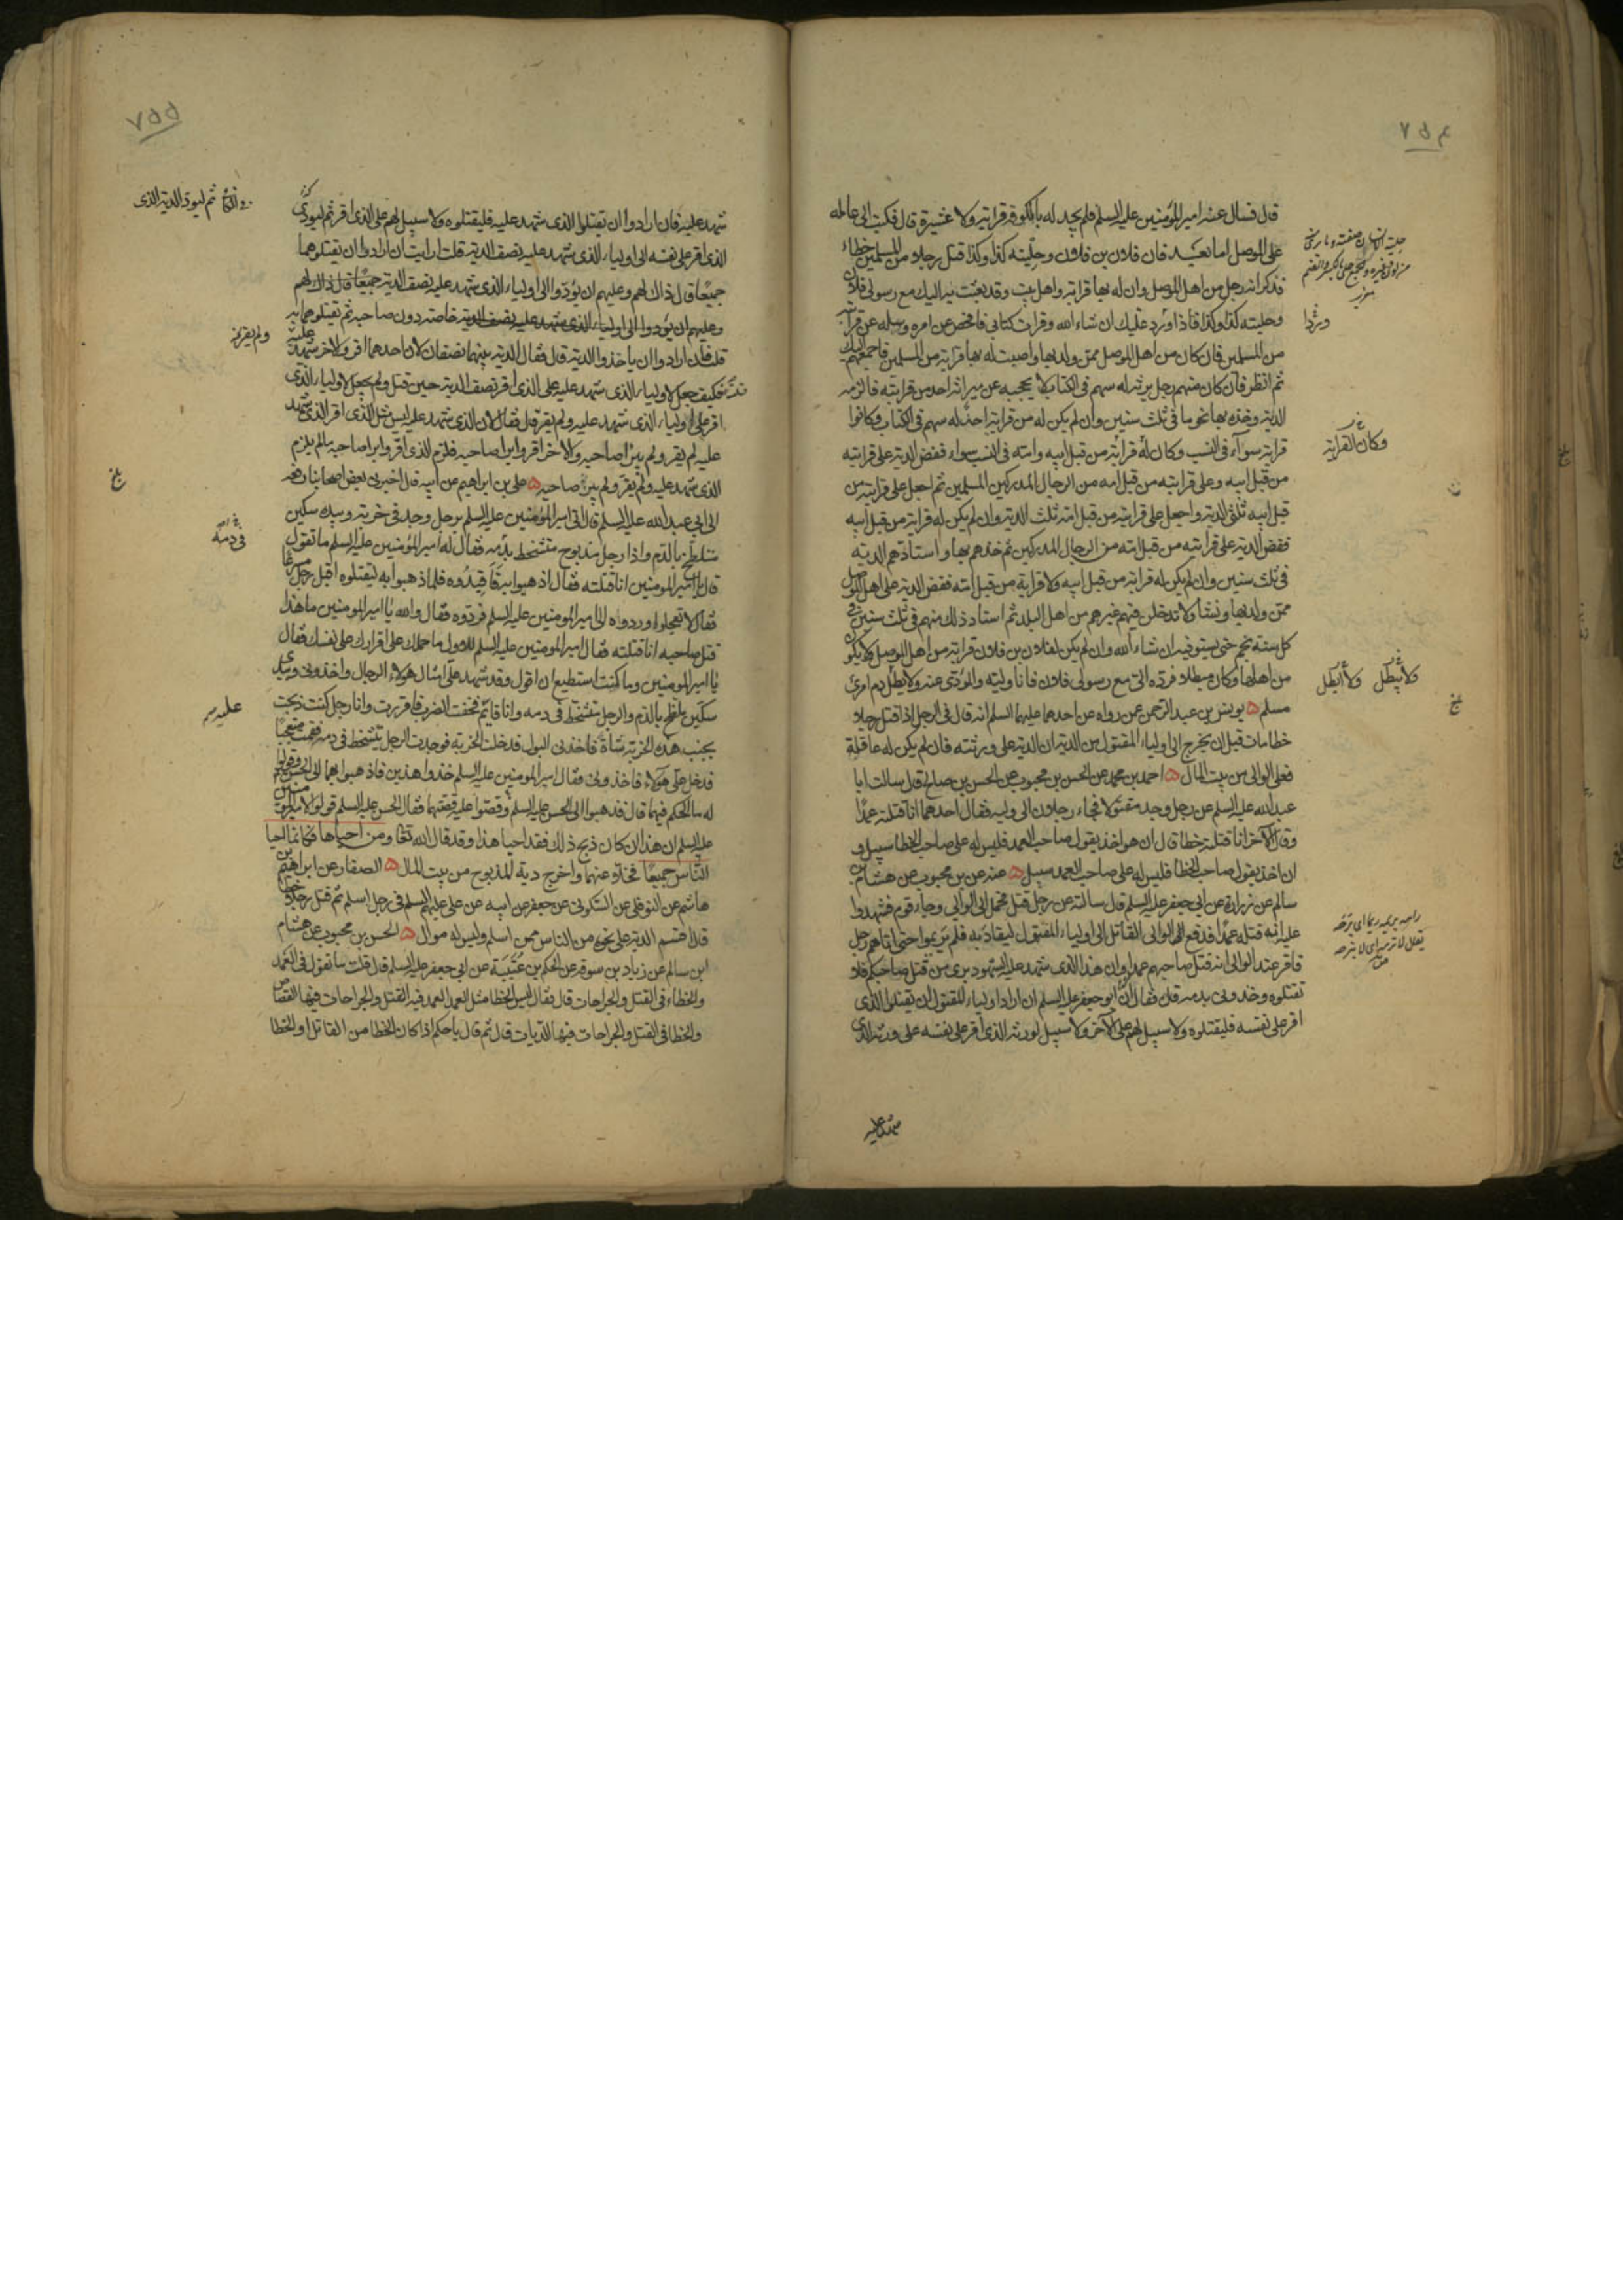 ٧٥٤
قال فسال عنه امير المؤمنين عليه السلم فلم يجد له بالكوفة قرابة ولا عشيرة قال فكتب الى عامله
على الموصل اما بعد فان فلان بن فلان وحليته كذا وكذا قتل رجلا من المسلمين خطاء
فذكر انه رجل من اهل الموصل وان له بها قرابة واهل بيت وقد بعثت به اليك مع رسولى فلان
وحليته كذا وكذا فاذا ورد عليك ان شاء الله وقرات كتابى فافحص عن امره وسل عن قرابته
من المسلمين فان كان من اهل الموصل ممن ولد بها واصبت له بها قرابة من المسلمين فاجمعهم اليك
ثم انظر فان كان منهم رجل يرثه له سهم فى الكتاب لا يحجبه عن ميراثه احد من قرابته فالزمه
الدية وخذه بها نجوما فى ثلث سنين وان لم يكن له من قرابته احد له سهم فى الكتاب وكانوا
قرابته سوآء فى النسب وكان له قرابة من قبل ابيه وامه فى النسب سواء ففض الدية على قرابته
من قبل ابيه وعلى قرابته من قبل امه من الرجال المدركين المسلمين ثم اجعل على قرابته من
قبل ابيه ثلثى الدية واجعل على قرابته من قبل امه ثلث الدية وان لم يكن له قرابة من قبل ابيه
ففض الدية على قرابته من قبل امه من الرجال المدركين ثم خذهم بها واستادهم الدية
فى ثلث سنين وان لم يكن له قرابة من قبل ابيه ولا قرابة من قبل امه ففض الدية على اهل الموصل
ممن ولد بها ونشا ولا تدخلن فيهم غيرهم من اهل البلد ثم استاد ذلك منهم فى ثلث سنين فى
كل سنة نجم حتى يستوفيه ان شاء الله وان لم يكن لفلان بن فلان قرابة من اهل الموصل ولا يكون
من اهلها وكان مبطلا فرده الى مع رسولى فلان فانا وليه والمؤدى عنه ولا يطل دم امرئ
مسلم ه يونس بن عبد الرحمن عمن رواه عن احدهما عليهما السلم انه قال فى الرجل اذا قتل رجلا
خطا مات قبل ان يخرج الى اولياء المقتول من الدية ان الدية على ورثته فان لم يكن له عاقلة
فعلى الوالى من بيت المال ه احمد بن محمد عن الحسن بن محبوب عن الحسن بن صالح قال سالت ابا
عبد الله عليه السلم عن رجل وجد مقتولا فجاء رجلان الى وليه فقال احدهما انا قتلته عمدًا
وقال الآخر انا قتلته خطا قال ان هو اخذ بقول صاحب العمد فليس له على صاحب الخطا سبيل و
ان اخذ بقول صاحب الخطا فليس له على صاحب العمد سبيل ه عنه عن بن محبوب عن هشام بن
سالم عن زرارة عن ابى جعفر عليه السلم قال سالته عن رجل قتل فحمل الى الوالى وجاء قوم فشهدوا
عليه انه قتله عمدًا فدفع الوالى القاتل الى اولياء المقتول ليقاد به فلم يريموا حتى اتاهم رجل
فاقر عند الوالى انه قتل صاحبهم عمدا وان هذا الذى شهد عليه الشهود برى من قتل صاحبكم فلا
تقتلوه وخذونى بدمه قال فقال ابو جعفر عليه السلم ان اراد اولياء المقتول ان يقتلوا الذى
اقر على نفسه فليقتلوه ولا سبيل لهم على الآخر ولا سبيل لورثة الذى اقر على نفسه على ورثة الذى
شهد عليه
وكان القرابة
ولا يبطل ولا أبطل
بلغ
٧٥٥
شهد عليه فان ارادوا ان يقتلوا الذى شهد عليه فليقتلوه ولا سبيل لهم على الذى اقر ثم ليودى
الذى اقر على نفسه الى اولياء الذى شهد عليه نصف الدية قلت ارايت ان ارادوا ان يقتلوهما
جميعًا قال ذاك لهم وعليهم ان يؤدوا الى اولياء الذى شهد عليه نصف الدية جميعًا قال ذاك لهم
وعليهم ان يؤدوا الى اولياء الذى شهد عليه نصف الدية خاصة دون صاحبه ثم تقتلوهما به
قلت فان ارادوا ان ياخذوا الدية قال فقال الدية بينهما نصفان لان احدهما اقر والاخر شهد عليه
قلت فكيف جعل لاولياء الذى شهد عليه على الذى اقر نصف الدية حين قتل ولم يجعل لاولياء الذى
اقر على اولياء الذى شهد عليه ولم يقر قال فقال لان الذى شهد عليه ليس مثل الذى اقر الذى شهد
عليه لم يقر ولم يبرا صاحبه والآخر اقر وابرا صاحبه فلزم الذى اقر وابرا صاحبه ما لم يلزم
الذى شهد عليه ولم يقر ولم يبرئ صاحبه ه على بن ابراهيم عن ابيه قال اخبرنى بعض اصحابنا رفعه
الى ابى عبد الله عليه السلم قال اتى امير المؤمنين عليه السلم برجل وجد فى خربة وبيده سكين
متلطخ بالدم واذا رجل مذبوح متشحط بدمه فقال له امير المؤمنين عليه السلم ما تقول
قال يا امير المومنين انا قتلته فقال اذهبوا به فاقيدوه فلما ذهبوا به ليقتلوه اقبل رجل مسرعا
فقال لا تعجلوا وردوه الى امير المومنين عليه السلم فردوه فقال والله يا امير المومنين ما هذا
قتل صاحبه انا قتلته فقال امير المومنين عليه السلم للاول ما حملك على اقرارك على نفسك فقال
يا امير المومنين وما كنت استطيع ان اقول وقد شهد على امثال هولاء الرجال واخذونى وبيدى
سكين ملطخ بالدم والرجل متشحط فى دمه وانا قائم فخفت الضرب فاقررت وانا رجل كنت ذبحت
بجنب هذه الخربة شاة فاخذنى البول فدخلت الخربة فوجدت الرجل يتشحط فى دمه فقمت متعجبًا
فدخل على هولاء فاخذونى فقال امير المومنين عليه السلم خذوا هذين فاذهبوا بهما الى الحسن وقولوا
له ما الحكم فيهما قال فذهبوا الى الحسن عليه السلم وقصوا عليه قصتهما فقال الحسن عليه السلم قولوا لامير المومنين
عليه السلم ان هذا ان كان ذبح ذلك فقد احيا هذا وقد قال الله تعالى ومن احياها فكانما احيا
الناس جميعًا فخلا عنهما واخرج دية المذبوح من بيت المال ه الصفار عن ابراهيم بن
هاشم عن النوفلى عن السكونى عن جعفر عن ابيه عن على عليهم السلم فى رجل اسلم ثم قتل رجلا خطا
قال اقسم الدية على نحوه من الناس ممن اسلم وليس له موال ه الحسن بن محبوب عن هشام
ابن سالم عن زياد بن سوقة عن الحكم بن عتيبة عن ابى جعفر عليه السلم قال قلت ما تقول فى العمد
والخطاء فى القتل والجراحات قال فقال ليس الخطا مثل العمد العمد فيه القتل والجراحات فيها القصاص
والخطا فى القتل والجراحات فيها الديات قال ثم قال يا حكم اذا كان الخطا من القاتل او الخطا
ثم ليود الدية الذى
ولم يقر
بلغ
فى دمه
عليه